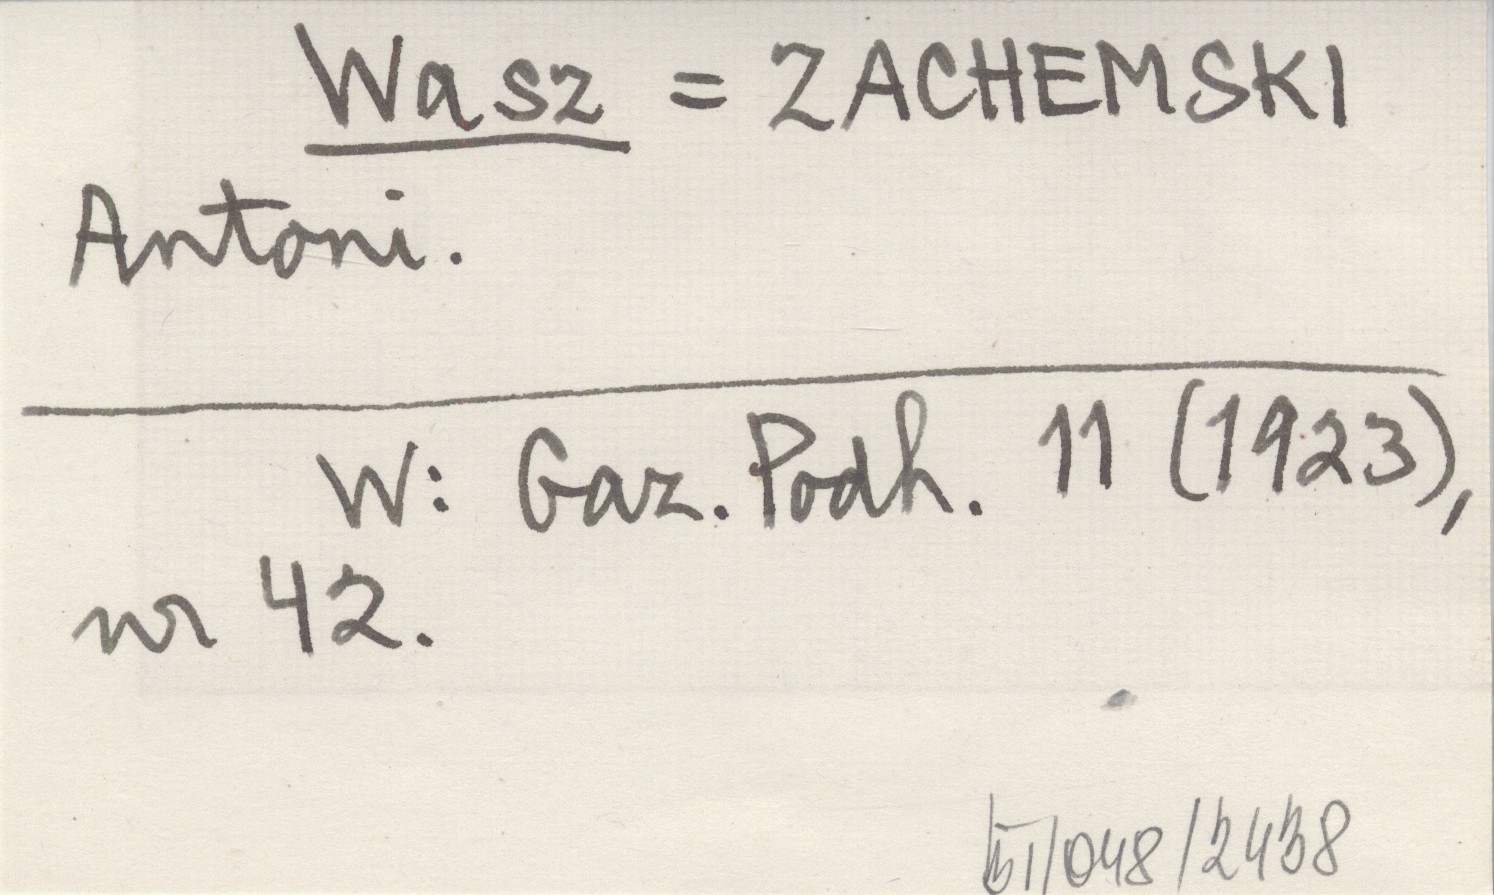 Wasz = ZACHEMSKI
Antoni.
W: Gaz. Podh. 11 (1923),
nr 42.